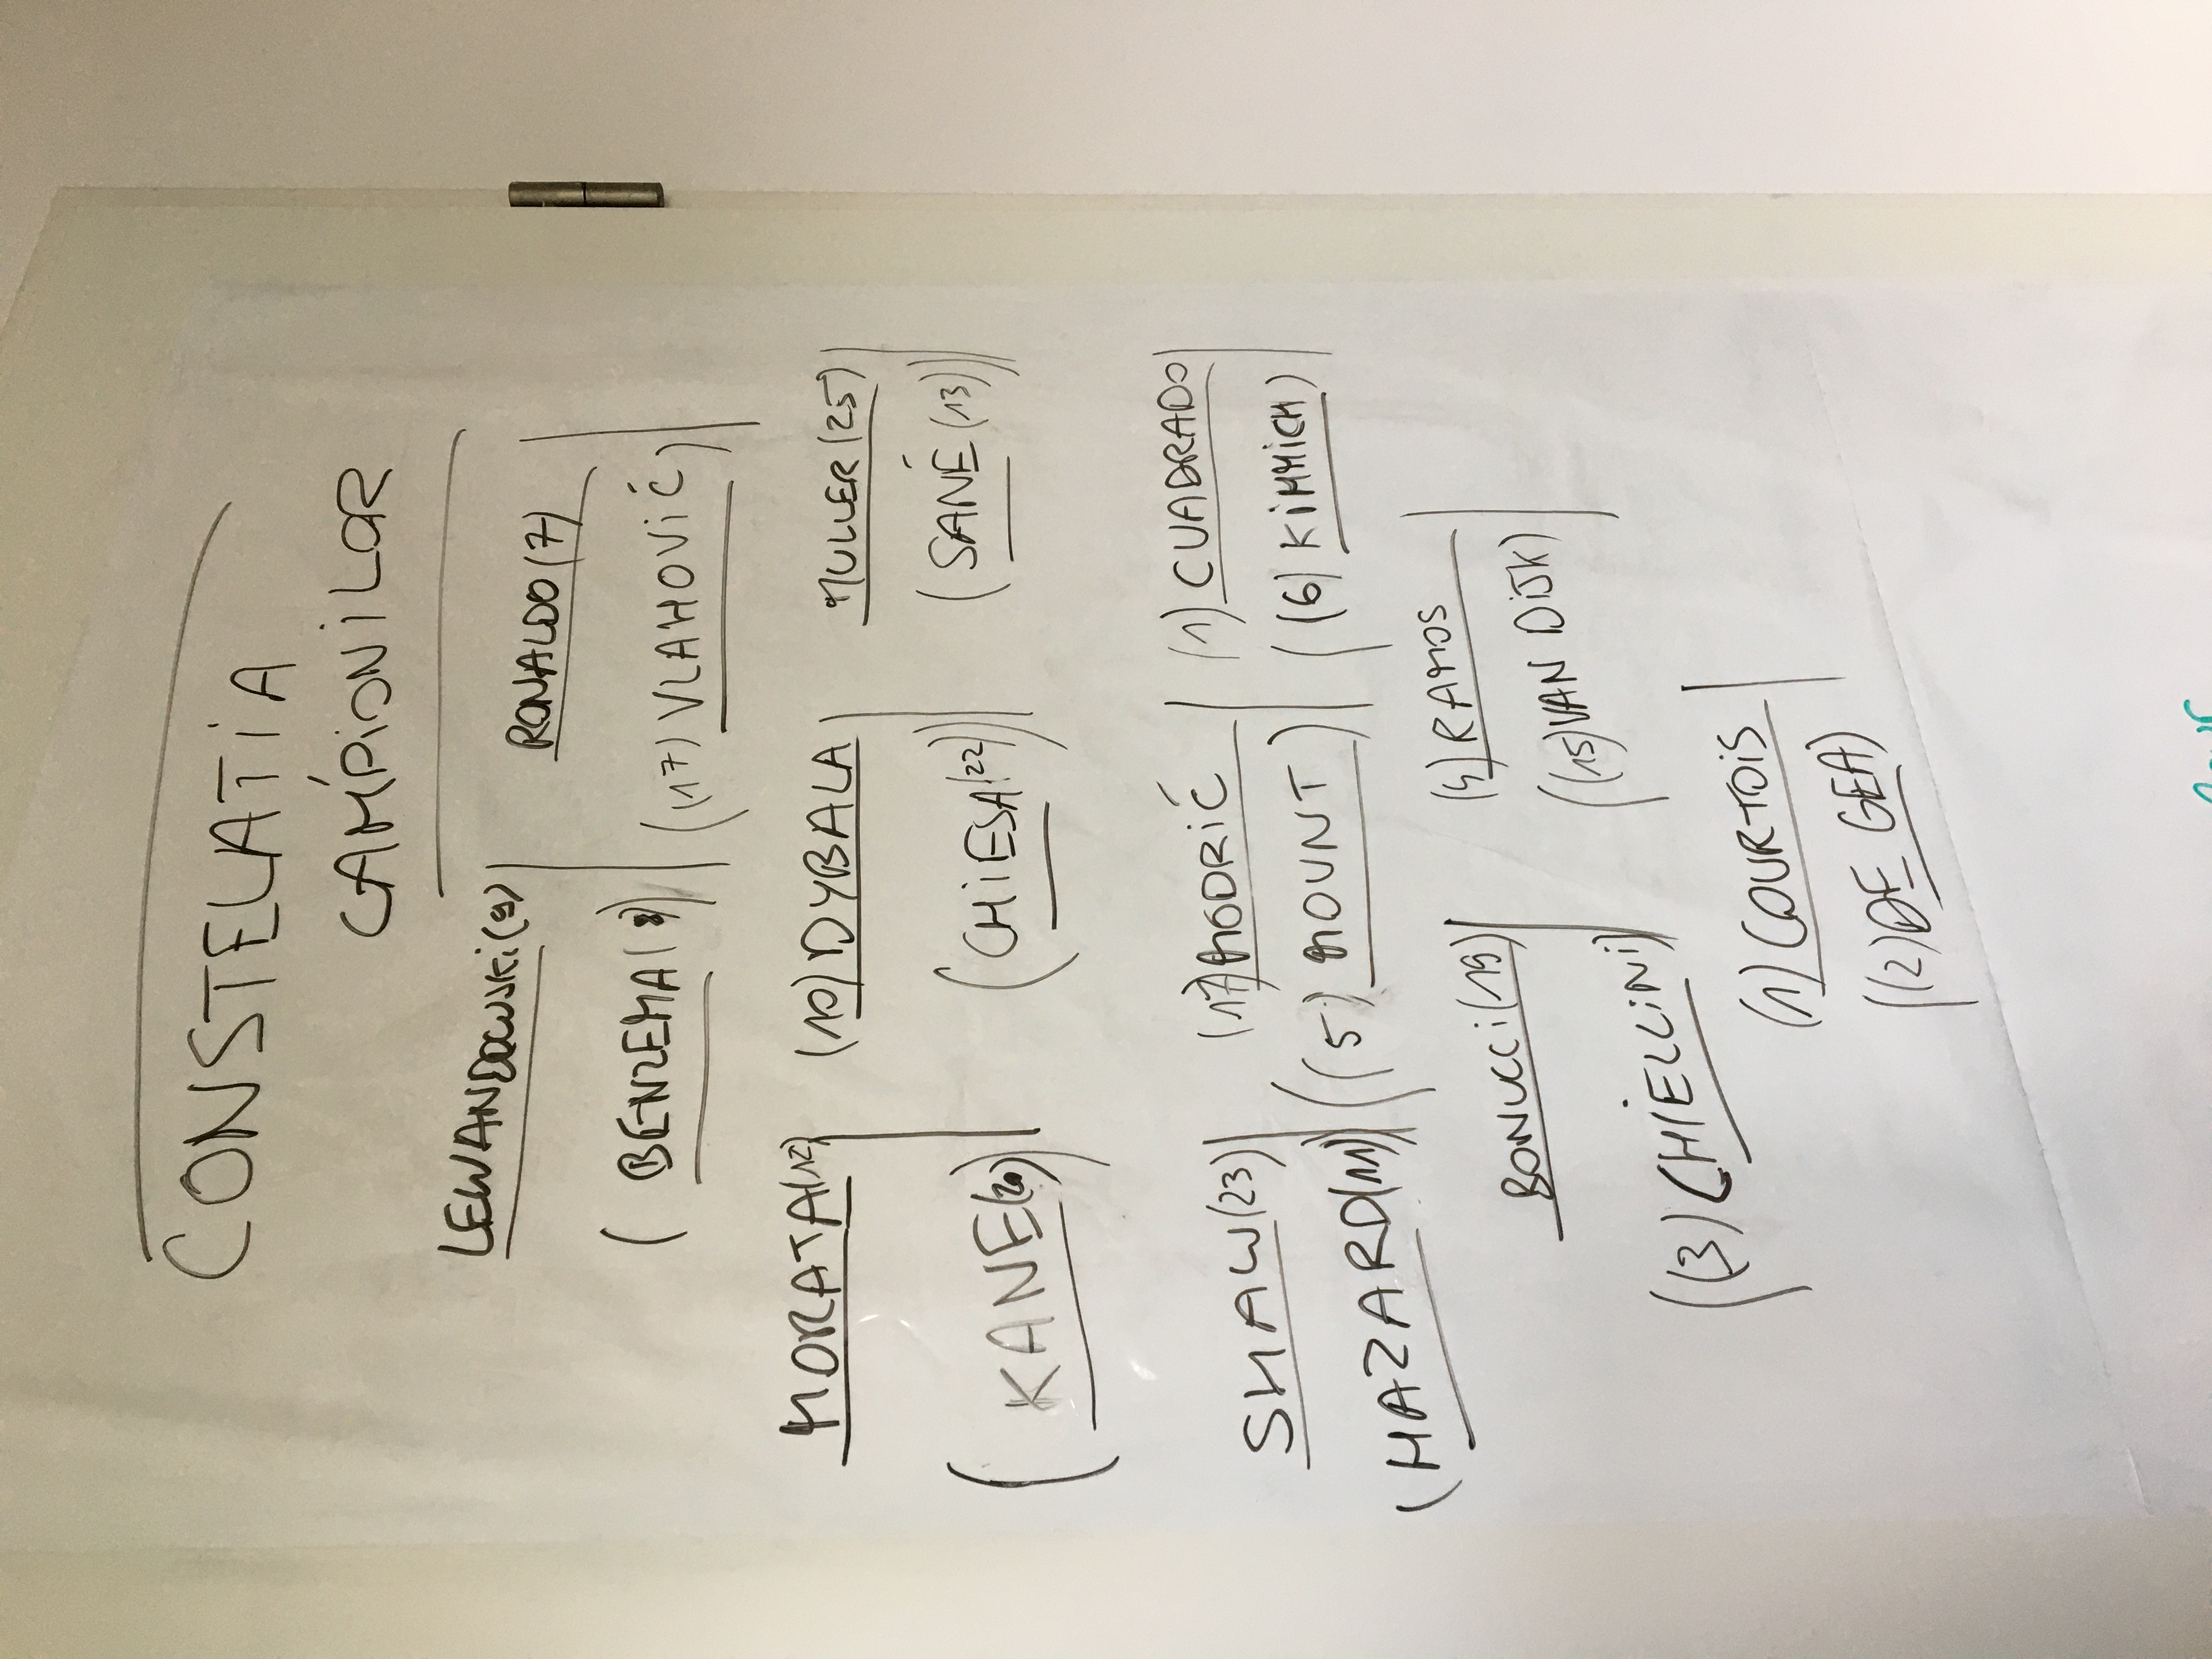 CONSTELATIA
CAMPIONILOR
LEWANDOWSKI (9) RONALDO (7)
(BENZEMA ( )) ((17) VLAHOVIĆ)
MORATA (12) (10) DYBALA MULLER (25)
(KANE (20)) (CHIESA (22)) (SANÉ (13))
SHAW (23) (17) MODRIĆ (1) CUADRADO
(HAZARD (11)) ((5) MOUNT) ((6) KIMMICH)
BONUCCI (19) (4) RAMOS
((3) CHIELLINI) ((15) VAN DIJK)
(1) COURTOIS
((2) DE GEA)